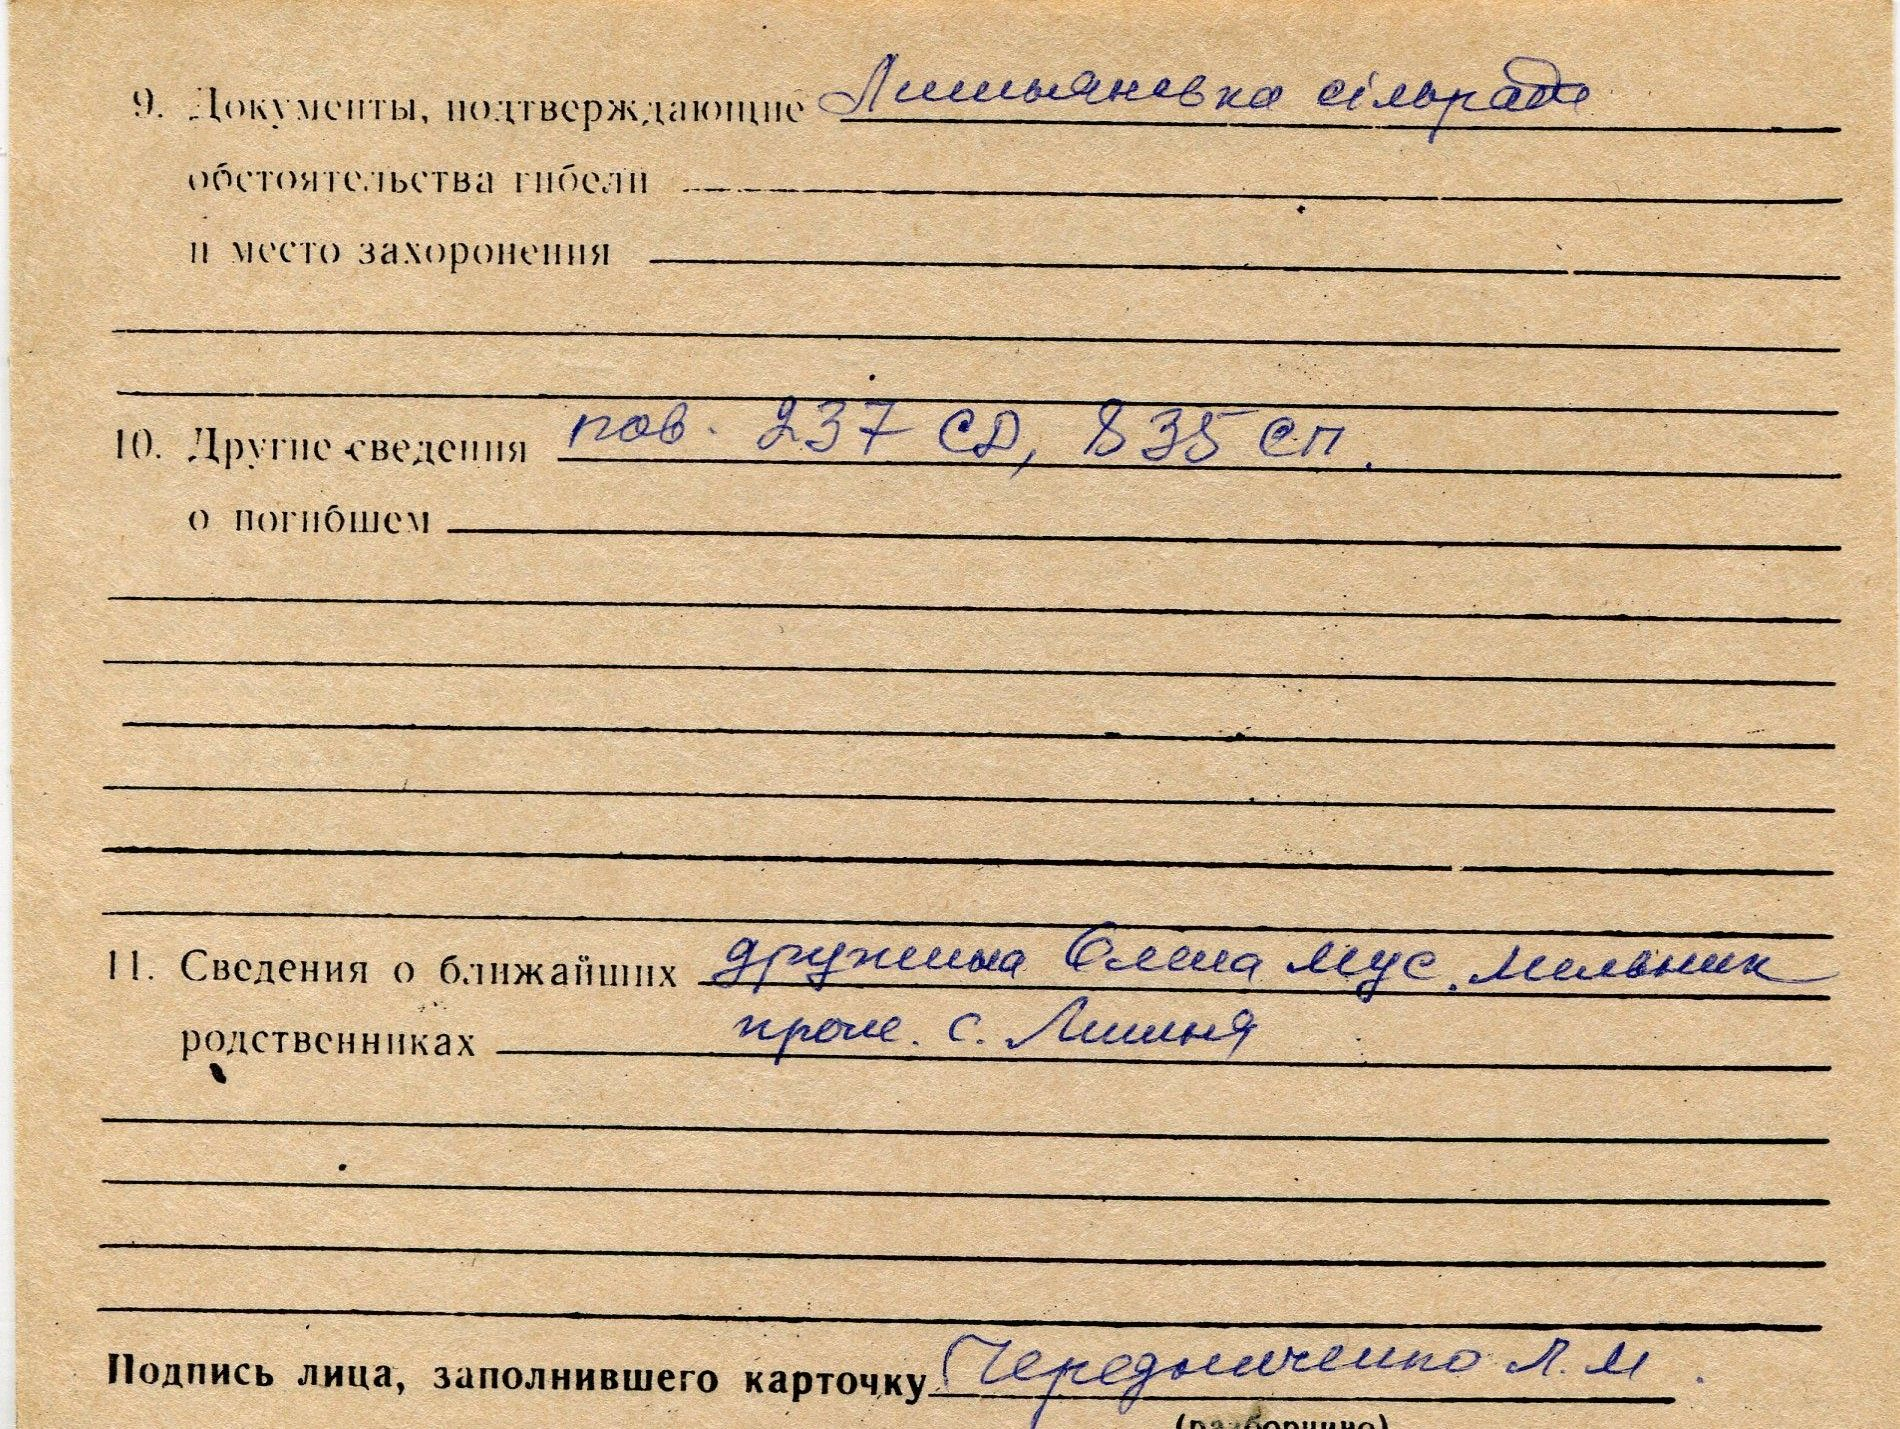 9. Документы, подтверждающие сільрада
обстоятельства гибели
и место захоронения
10. Другие сведения пов. 237 СД, 835 сп.
о погибшем
11. Сведения о ближайших дружина Олена Мус. Мельник
родственниках прож. с. Лишня
Подпись лица, заполнившего карточку Чередниченко Л. М.
(разборчиво)